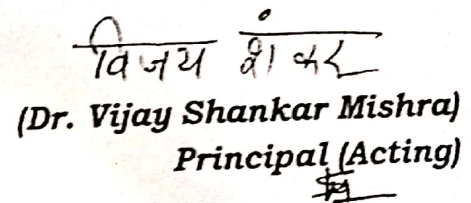 विजय शंकर
(Dr. Vijay Shankar Mishra)
Principal (Acting)